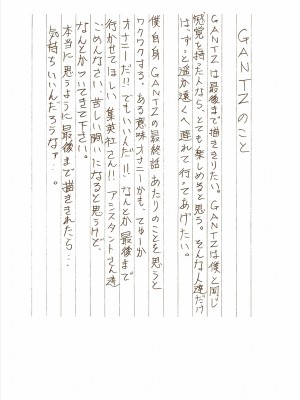 GANTZのこと
GANTZは最後まで描ききりたい。GANTZは僕と同じ
感覚を持った人なら、とても楽しめると思う。そんな人達だけ
は、ずっと遥か遠くへ連れて行ってあげたい。
僕自身、GANTZの最終話あたりのことを思うと
ワクワクする。ある意味オナニーかも、てゅーか
オナニーだ!!でもいいんだ!!なんとか最後まで
行かせてほしい、集英社さん!!アシスタントさん達
ごめんなさい、苦しい闘いになると思うけど、
なんとかついてきて下さい。
本当に思うように最後まで描ききれたら…
気持ちいいんだろうなァ…。